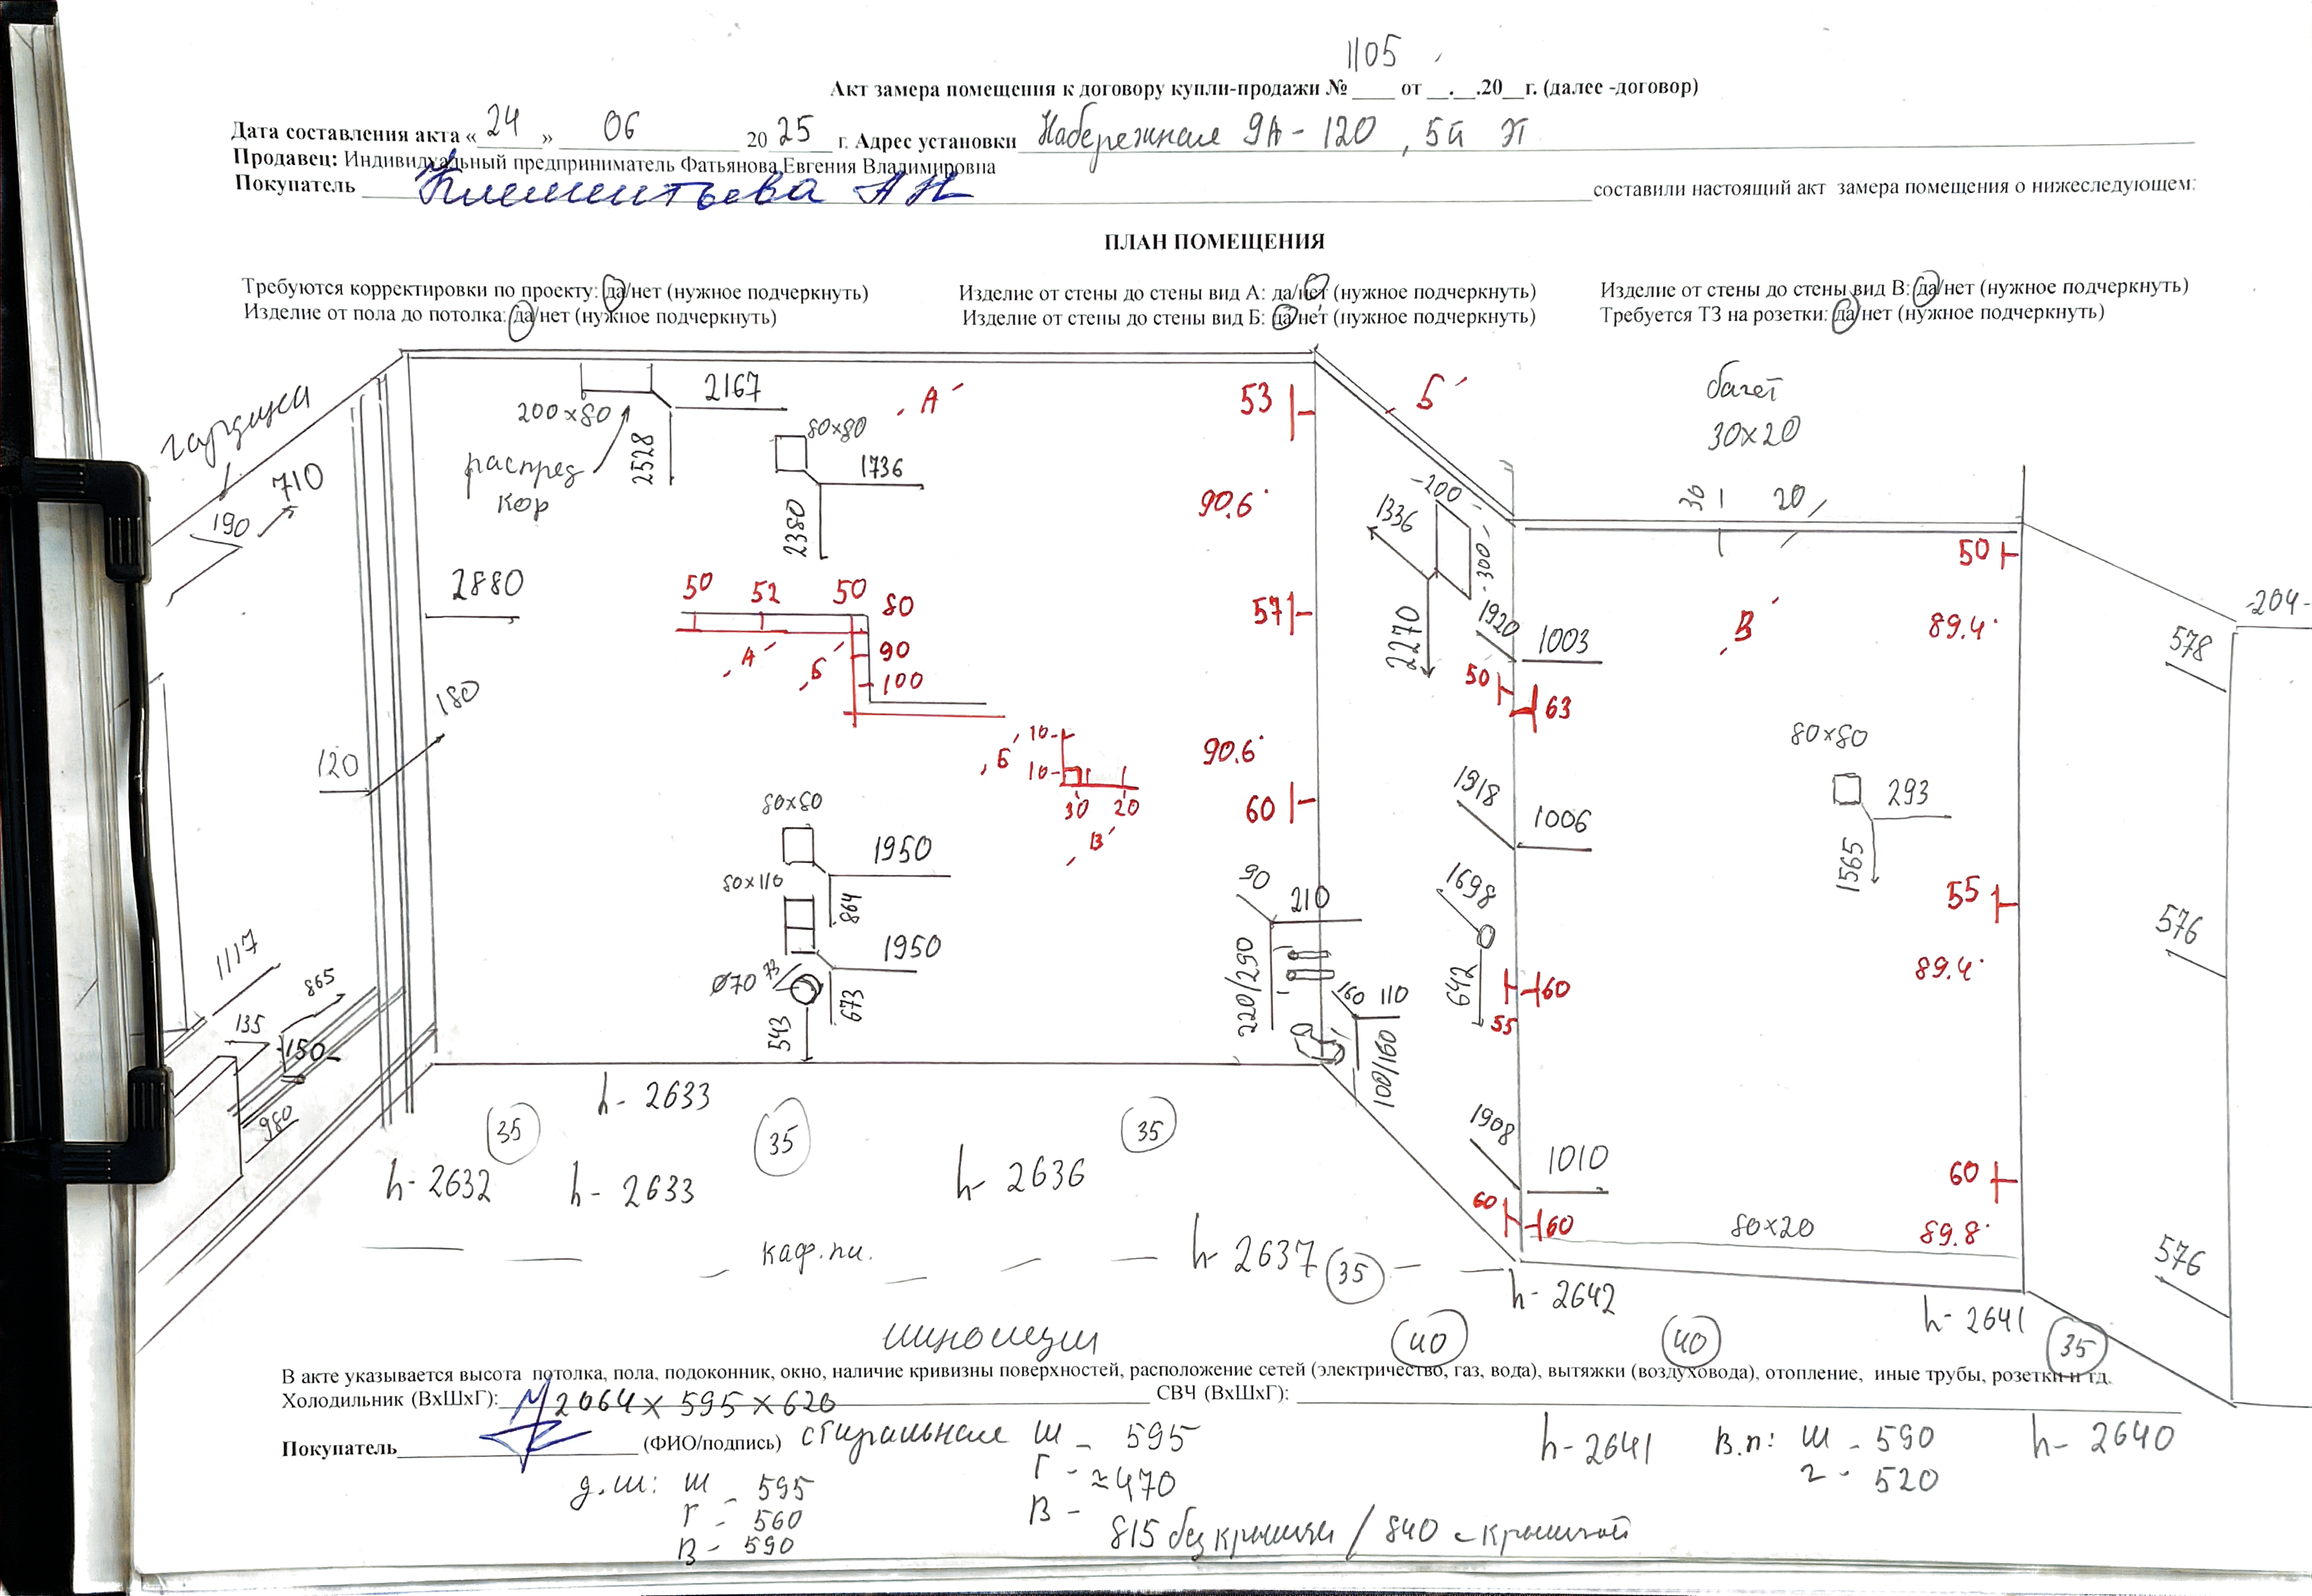 1105
Акт замера помещения к договору купли-продажи № ____ от __.__.20__г. (далее -договор)
Дата составления акта «24» 06 2025 г. Адрес установки Набережная 9А - 120, 5й эт
Продавец: Индивидуальный предприниматель Фатьянова Евгения Владимировна
Покупатель Клементьева А Н составили настоящий акт замера помещения о нижеследующем:
ПЛАН ПОМЕЩЕНИЯ
Требуются корректировки по проекту: да/нет (нужное подчеркнуть) Изделие от стены до стены вид А: да/нет (нужное подчеркнуть) Изделие от стены до стены вид В: да/нет (нужное подчеркнуть)
Изделие от пола до потолка: да/нет (нужное подчеркнуть) Изделие от стены до стены вид Б: да/нет (нужное подчеркнуть) Требуется ТЗ на розетки: да/нет (нужное подчеркнуть)
710
190
2880
120
180
1117
135
865
150
980
200x80
2167
2528
распред
кор
А
80x80
1736
2380
50 52 50 80
90
100
А
Б
Б
10
10
30 20
В
80x80
1950
864
80x110
1950
673
Ø70
73
543
53
90.6°
57
90.6°
60
90
210
220/290
160 110
100/160
Б
1336
-200-
-300-
2270
1920
1003
50
63
1918
1006
1698
642
60
55
1908
1010
60
60
багет
30x20
30
20
50
В
89.4°
80x80
293
1565
55
89.4°
60
80x20
89.8°
-204-
578
576
576
h- 2633
35
35
35
h- 2632
h- 2633
h- 2636
каф. пл.
h- 2637
35
h- 2642
h- 2641
40
40
35
В акте указывается высота потолка, пола, подоконник, окно, наличие кривизны поверхностей, расположение сетей (электричество, газ, вода), вытяжки (воздуховода), отопление, иные трубы, розетки и тд.
Холодильник (ВхШхГ): 2064 x 595 x 620 СВЧ (ВхШхГ):
Покупатель (ФИО/подпись) стиральная Ш - 595
Г - ≈470
В - 815 без крышки / 840 с крышкой
д.ш: Ш - 595
Г - 560
В - 590
h- 2641
В.п: Ш - 590
Г - 520
h- 2640